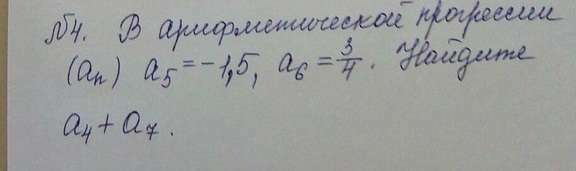 №4. В арифметической прогрессии
(aₙ) a₅ = -1,5, a₆ = 3/4. Найдите
a₄ + a₇.